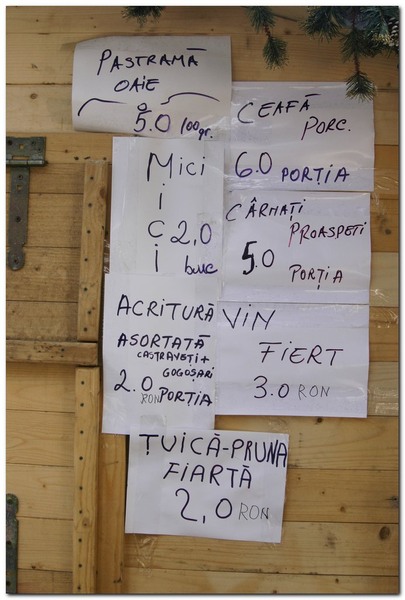 PASTRAMĂ
OAIE
5.0 100gr.
CEAFĂ
PORC.
6.0 PORȚIA
Mici
i
c 2,0
i buc
CÂRNAȚI
PROASPEȚI
5.0
PORȚIA
ACRITURĂ
ASORTATĂ
CASTRAVEȚI+
GOGOȘARI
2.0 RON PORȚIA
VIN
FIERT
3.0 RON
ȚUICĂ-PRUNA
FIARTĂ
2,0 RON